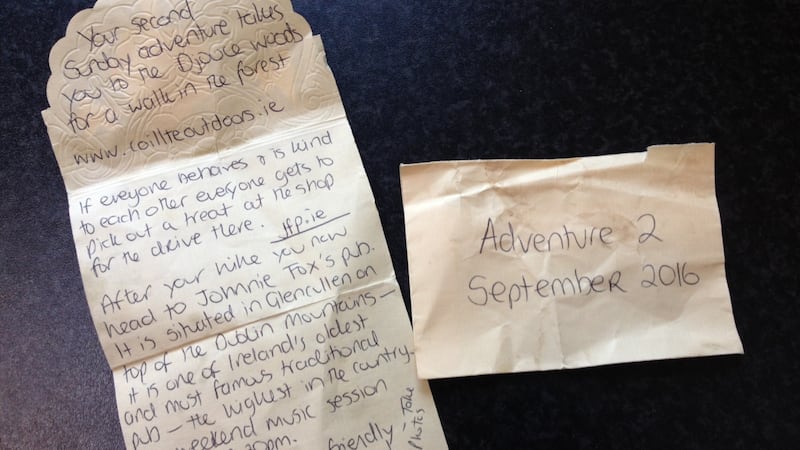 Your second
Sunday adventure takes
you to the Djouce woods
for a walk in the forest
www.coillteoutdoors.ie
If everyone behaves & is kind
to each other everyone gets to
pick out a treat at the shop
for the drive there.
After your hike you now
head to Johnnie Fox's pub.
It is situated in Glencullen on
top of the Dublin Mountains –
it is one of Ireland's oldest
and most famous traditional
pub – the highest in the country.
weekend music session
30pm.
friendly – Take
photos
Adventure 2
September 2016